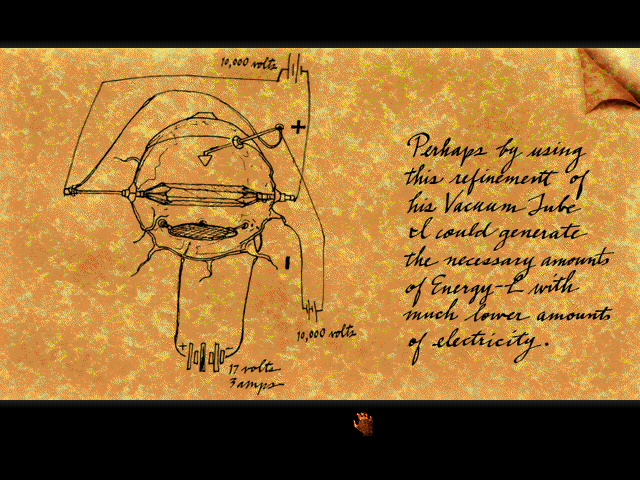 10,000 volts
+
Perhaps by using
this refinement of
his Vacuum Tube
I could generate
the necessary amounts
of Energy-L with
much lower amounts
of electricity.
-
10,000 volts
+ -
17 volts
3 amps